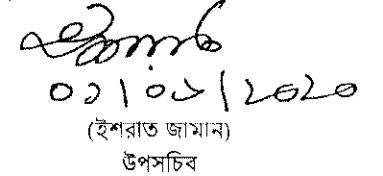 ০১/০৬/২০২০
(ইশরাত জামান)
উপসচিব